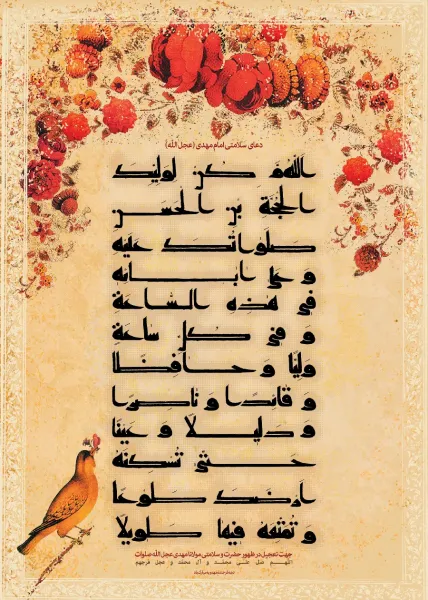 دعای سلامتی امام مهدی (عجل الله)
اللهم کن لولیک
الحجة بن الحسن
صلواتک علیه
و علی آبائه
فی هذه الساعة
و فی کل ساعة
ولیا و حافظا
و قائدا و ناصرا
و دلیلا و عینا
حتی تسکنه
ارضک طوعا
و تمتعه فیها طویلا
جهت تعجیل در ظهور حضرت و سلامتی مولانا مهدی عجل الله صلوات
اللهم صل علی محمد و آل محمد و عجل فرجهم